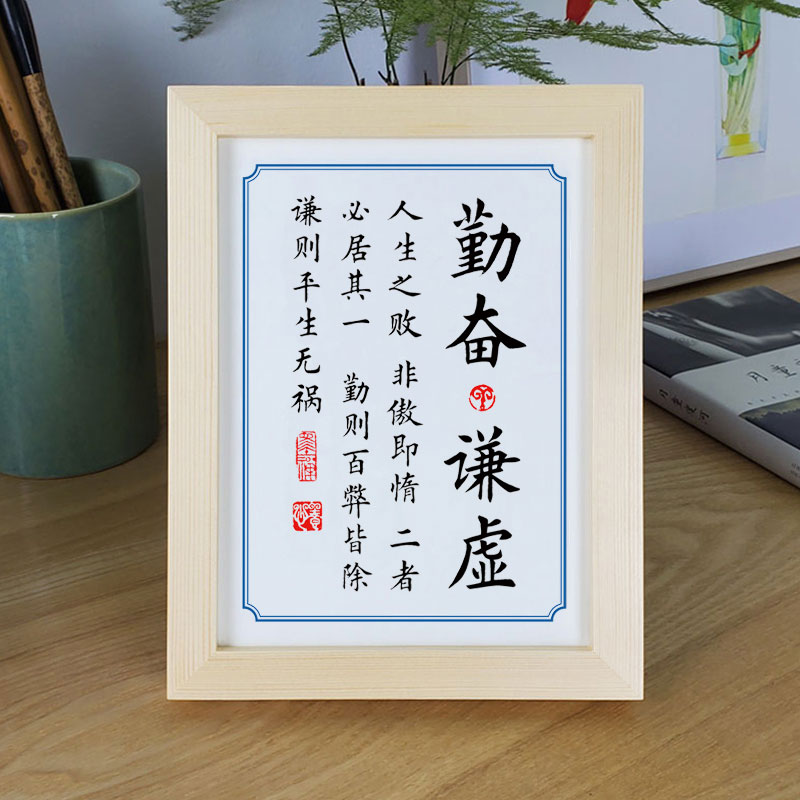 勤奋 谦虚
人生之败 非傲即惰 二者
必居其一 勤则百弊皆除
谦则平生无祸